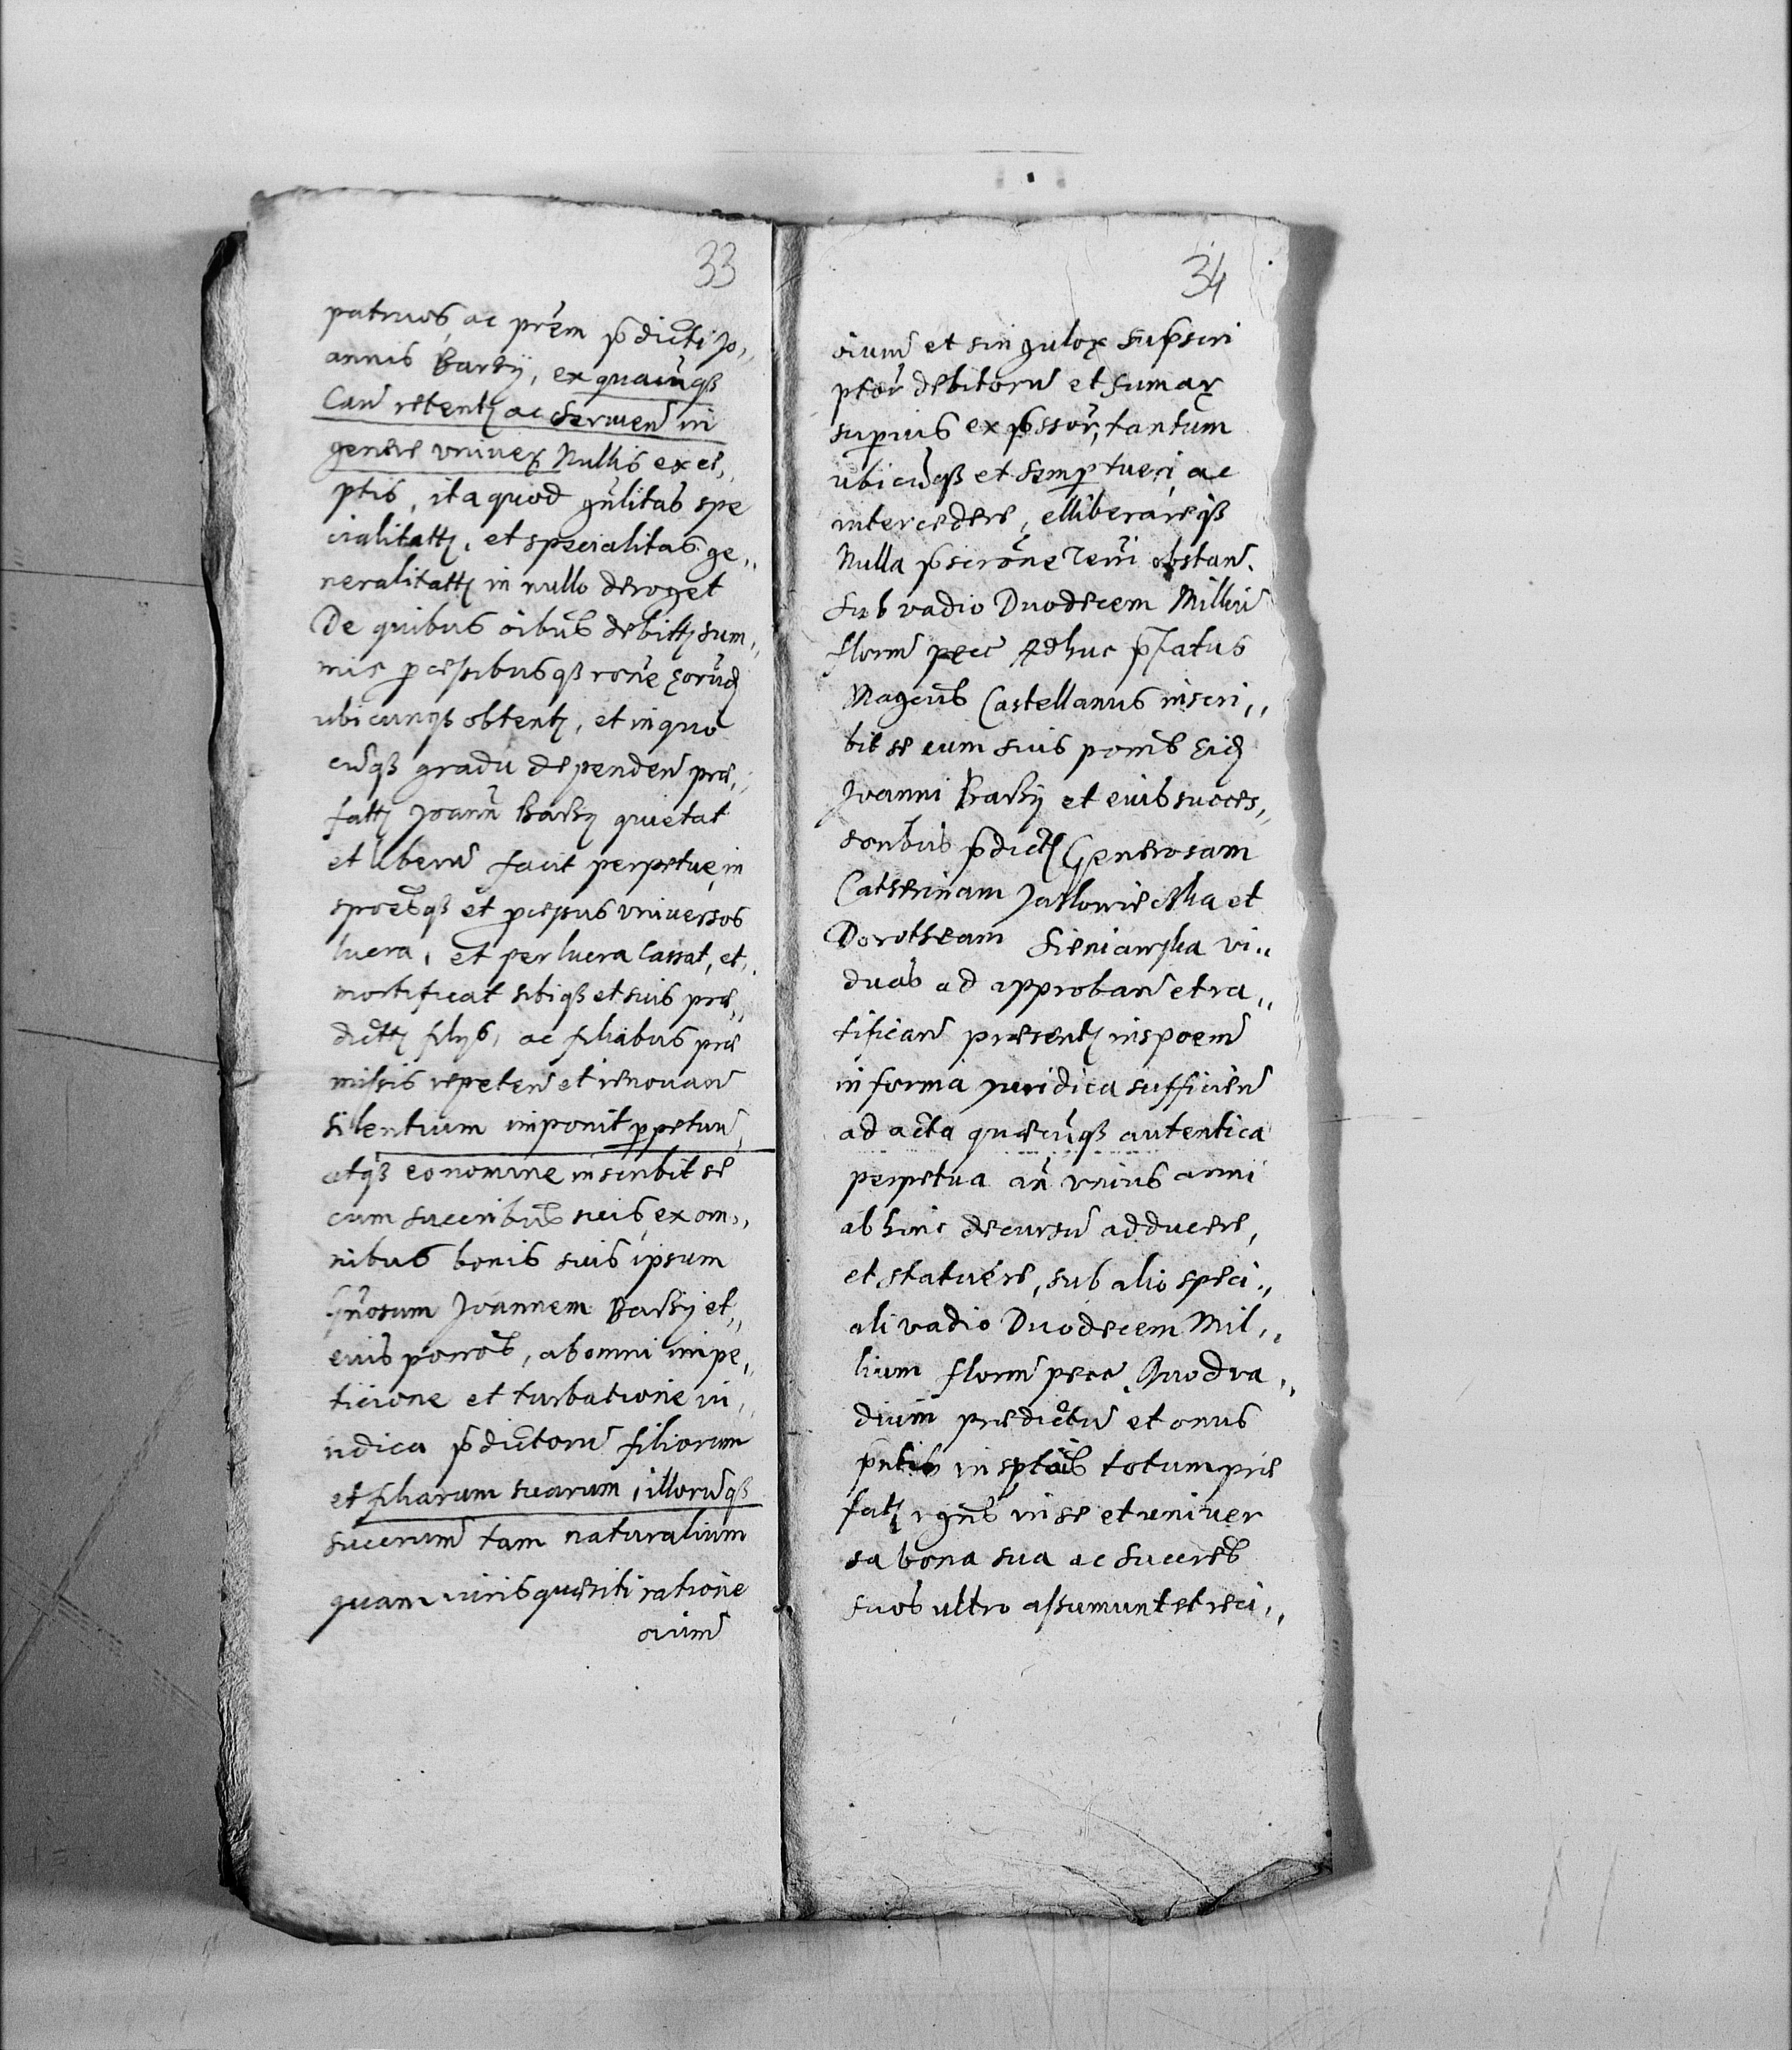 33
patruos, ac prem pdicti Jo,,
annis Barzy, ex quacunqz
Caũ retentz ac Servień in
genere vniuerz Nullis excȩ,,
ptis, ita quod gnlitas spe
cialitattz, et specialitas ge,,
neralitattz in nullo deroget
De quibus oibus debittz sum,,
mis pcessibusqz rone eorundz
ubicunqz obtentz, et in quo
cuqz gradu dependeñ præ,,
fattz Joann Barzy quietat
et liberu facit perpetue, in
sproesqz et pcessus vniuersos
lucra, et per lucra Cassat, et,,
mortificat sibiqz et suis præ,,
dicttz filys, ac filiabus præ
missis repeteñ et renouañ
silentium imponit ppetuu,
atqz eo nomine inscribit se
cum succribus suis, ex om,,
nibus bonis suis ipsum
Gnosum Joannem Barzy et,,
euis ponos, ab omni impe,,
ticione et turbatione iu,,
ridica pdictoru filiorum
et filiarum suarum, illoruqz
succrum tam naturalium
quam iuris quæsiti ratione
oium
34
oium et singulorz supscri
ptor debitoru et sumarz
superius expssor, tantum
ubicuqz et semp tueri, ac
intercedere, elliberareqz
Nulla pscrone Terri obstañ.
sub vadio Duodecem Milliu
floru pecc Adhuc pfatus
Magcus Castellanus inscri,,
bit se cum suis ponis Eidz
Joanni Barzy et euis succes,,
soribus pdicttz Generosam
Catherinam Jaslowieczka et
Dorotheam Sieniawska vi,,
duas ad approbañ et ra,,
tificañ præsentz inspoem
in forma juridica sufficień
ad acta quæcuqz autentica
perpetua añ vnius anni
ab hinc decursu adducere,
et statuere, sub alio speci,,
ali vadio Duodecem Mil,,
lium floru pecc Quod va,,
dium prædictu et onus
pntis insptois totum præ
fatz rgns in se et vniver
sa bona sua ac succres
suos ultro assumunt et reci,,